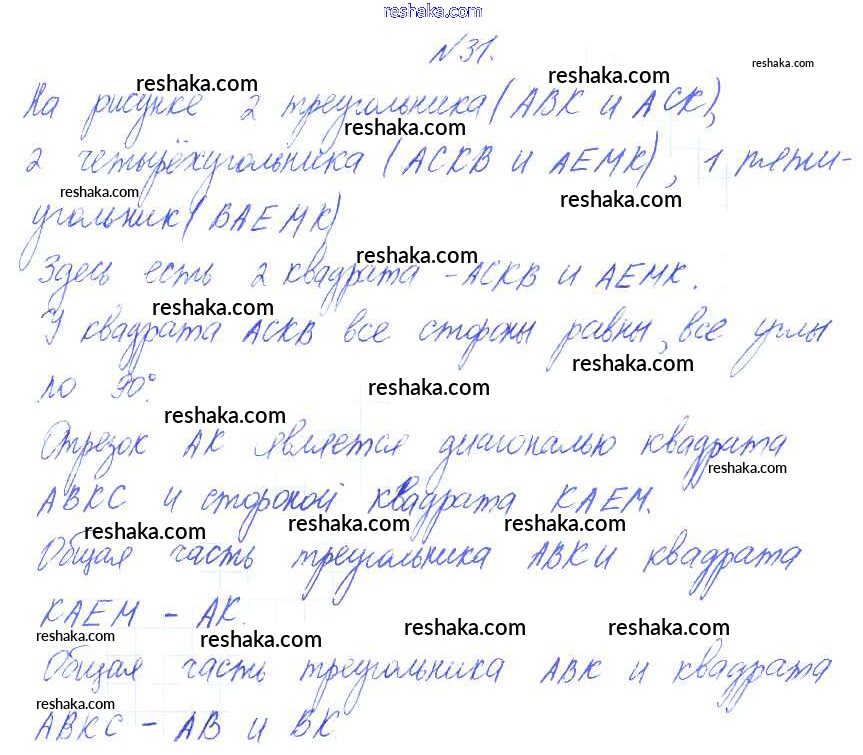 reshaka.com
№31.
reshaka.com
reshaka.com reshaka.com
На рисунке 2 треугольника (АВК и АСК),
reshaka.com
2 четырёхугольника (АСКВ и АЕМК), 1 пяти-
reshaka.com reshaka.com
угольник (ВАЕМК)
reshaka.com
Здесь есть 2 квадрата - АСКВ и АЕМК.
reshaka.com
У квадрата АСКВ все стороны равны, все углы
reshaka.com
по 90°.
reshaka.com
reshaka.com
Отрезок АК является диагональю квадрата
reshaka.com
АВКС и стороной квадрата КАЕМ.
reshaka.com reshaka.com reshaka.com
Общая часть треугольника АВК и квадрата
КАЕМ - АК.
reshaka.com reshaka.com reshaka.com reshaka.com
Общая часть треугольника АВК и квадрата
reshaka.com reshaka.com reshaka.com
АВКС - АВ и ВК